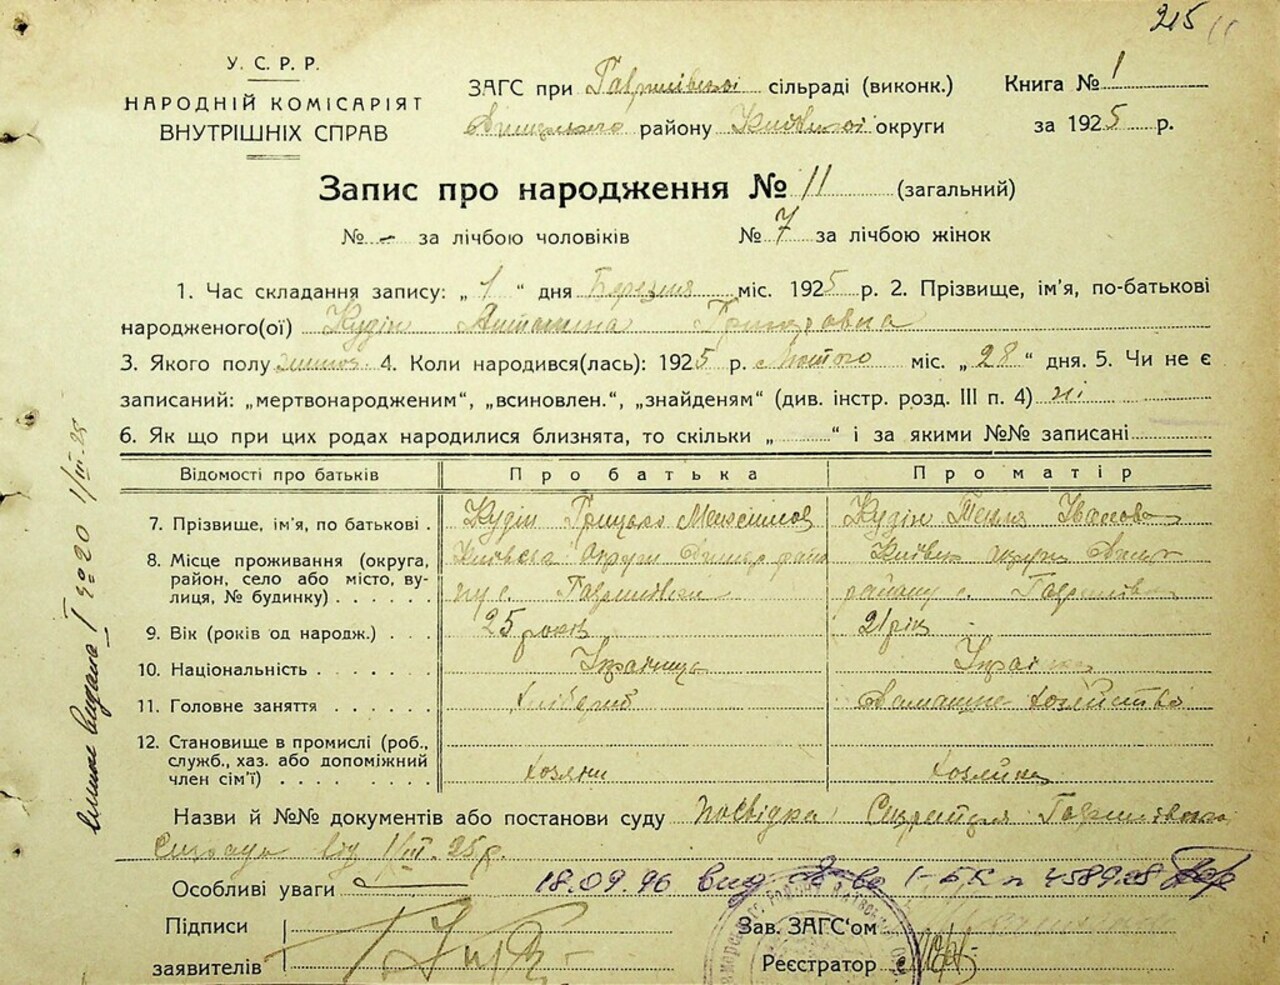 215
У. С. Р. Р.
НАРОДНІЙ КОМІСАРІЯТ
ВНУТРІШНІХ СПРАВ
ЗАГС при Гаврилівскої сільраді (виконк.)
району Київскої округи
Книга № 1
за 1925 р.
Запис про народження № 11 (загальний)
№ - за лічбою чоловіків № 7 за лічбою жінок
1. Час складання запису: „ 1 “ дня Березня міс. 1925 р. 2. Прізвище, ім'я, по-батькові
народженого(ої) Кудін Антонина Григоровна
3. Якого полу 4. Коли народився(лась): 1925 р. Лютого міс. „ 28 “ дня. 5. Чи не є
записаний: „мертвонародженим“, „всиновлен.“, „знайденям“ (див. інстр. розд. III п. 4) ні
6. Як що при цих родах народилися близнята, то скільки „ “ і за якими №№ записані
Відомості про батьків Про батька Про матір
7. Прізвище, ім'я, по батькові . Кудін Грицько Максимов Кудін Іванова
8. Місце проживання (округа, Київска округи Київск округи
район, село або місто, ву- с. Гаврилівки району с.
лиця, № будинку)
9. Вік (років од народж.) 25 років 21 рік
10. Національність Українець Українка
11. Головне заняття Хлібороб Домашне хозяйство
12. Становище в промислі (роб.,
служб., хаз. або допоміжний
член сім'ї) хозяин хозяйка
Назви й №№ документів або постанови суду посвідка
від 1/III-25р.
Особливі уваги 18.09.96 1-БК
Підписи
заявителів
Зав. ЗАГС'ом
Реєстратор
видана 1/III-25